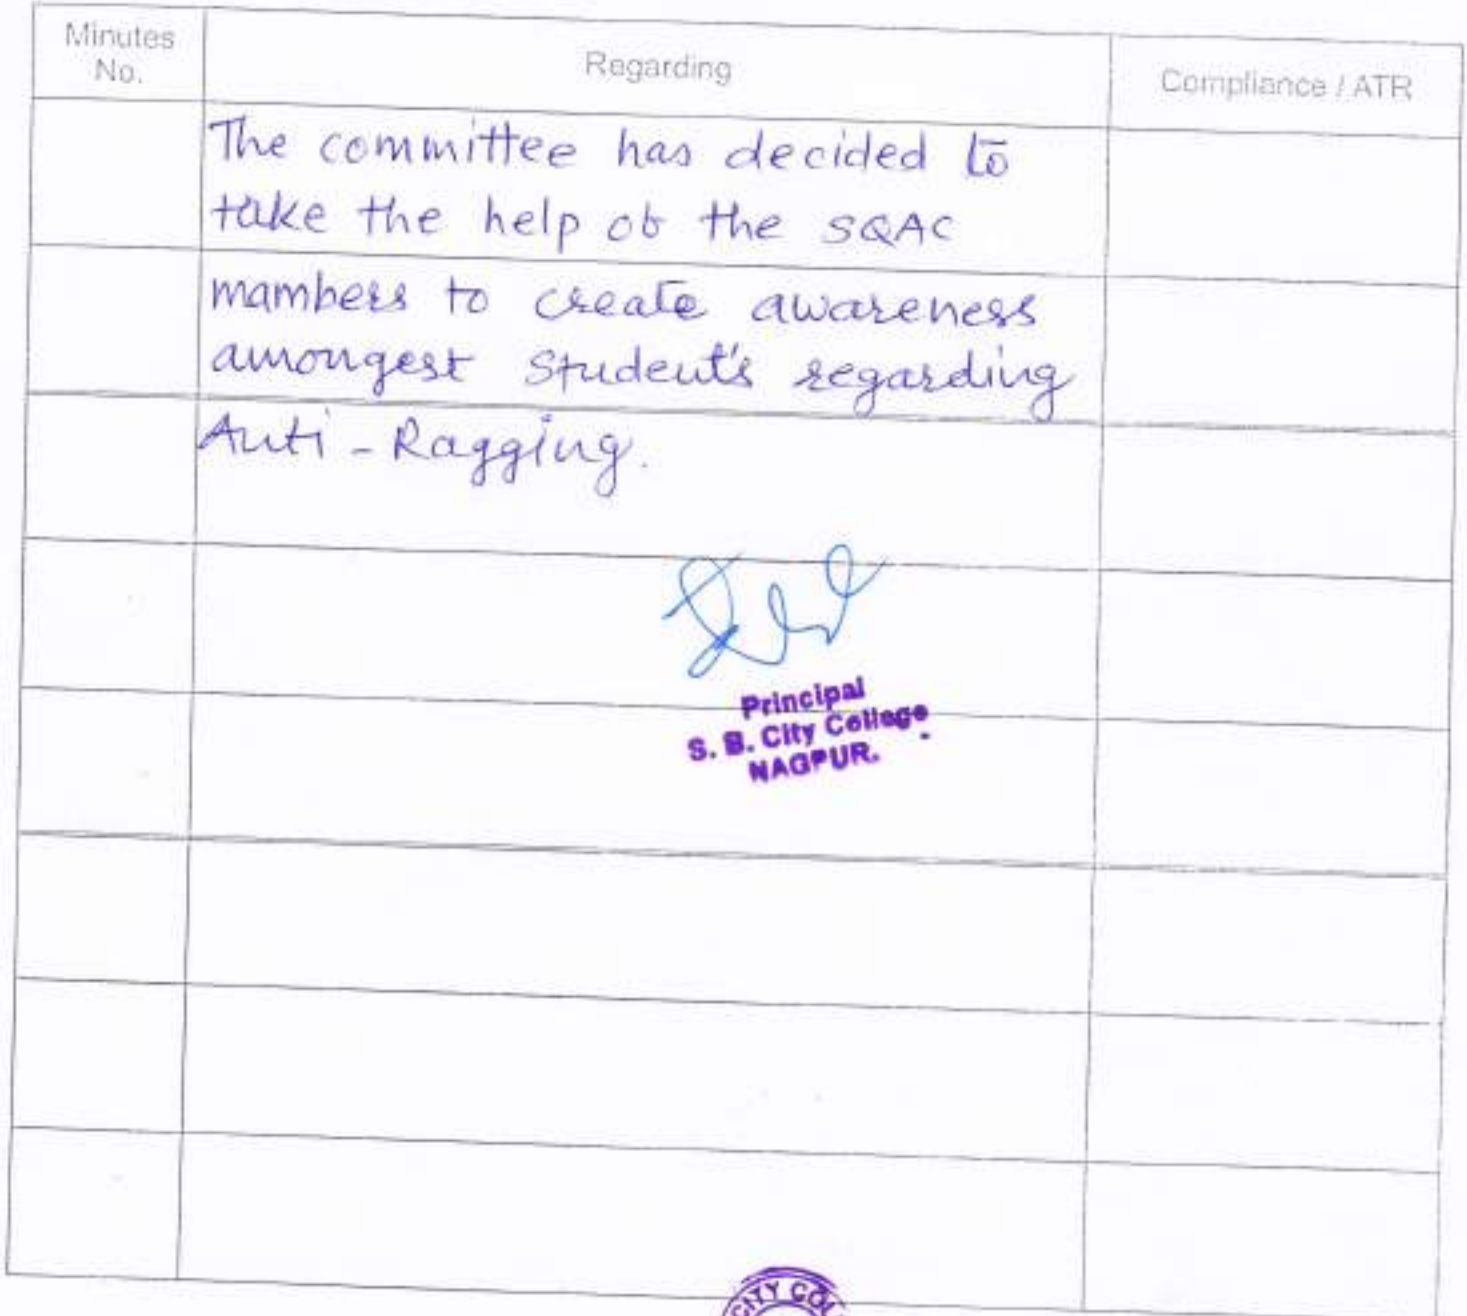 Minutes
No.
Regarding
Compliance / ATR
The committee has decided to
take the help of the SQAC
mambers to create awareness
amongest Student's regarding
Anti - Ragging.
Principal
S. B. City College
NAGPUR.
CITY